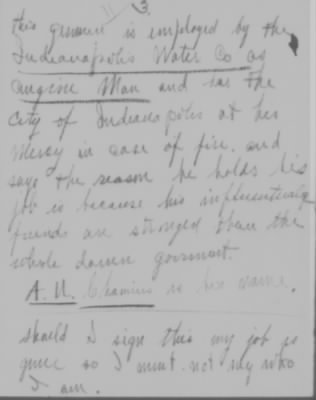 3.
this german is employed by the
Indianapolis Water Co as
engine Man and has the
City of Indianapolis at his
Mercy in case of fire. and
says the reason he holds his
job is because his influential
friends are stronged then the
whole damn goverment.
A. U. is his name.
should I sign this my job is
gone so I must not my who
I am.